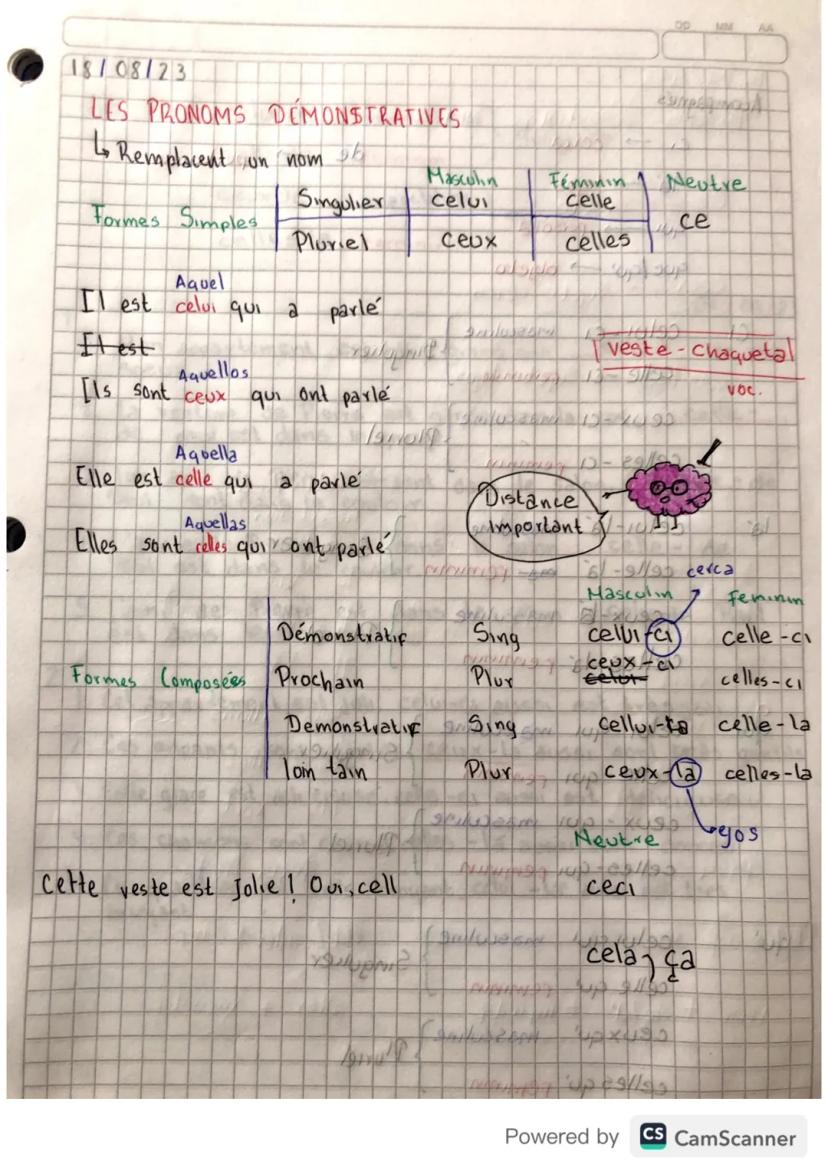 DD MM AA
18/08/23
LES PRONOMS DÉMONSTRATIVES
↳ Remplacent un nom
Masculin Féminin Neutre
Formes Simples Singulier celui celle ce
Pluriel ceux celles
Aquel
Il est celui qui a parlé
Il est
veste - chaqueta
voc.
Aquellos
Ils sont ceux qui ont parlé
Aquella
Elle est celle qui a parlé
Distance
important
Aquellas
Elles sont celles qui ont parlé
cerca
Masculin Feminin
Démonstratif Sing cellui-ci celle-ci
ceux-ci
Formes Composées Prochain Plur celui celles-ci
Demonstratif Sing cellui-la celle-la
loin tain Plur ceux-la celles-la
Neutre
Cette veste est Jolie! Oui, cell ceci
cela, ça
Powered by CS CamScanner